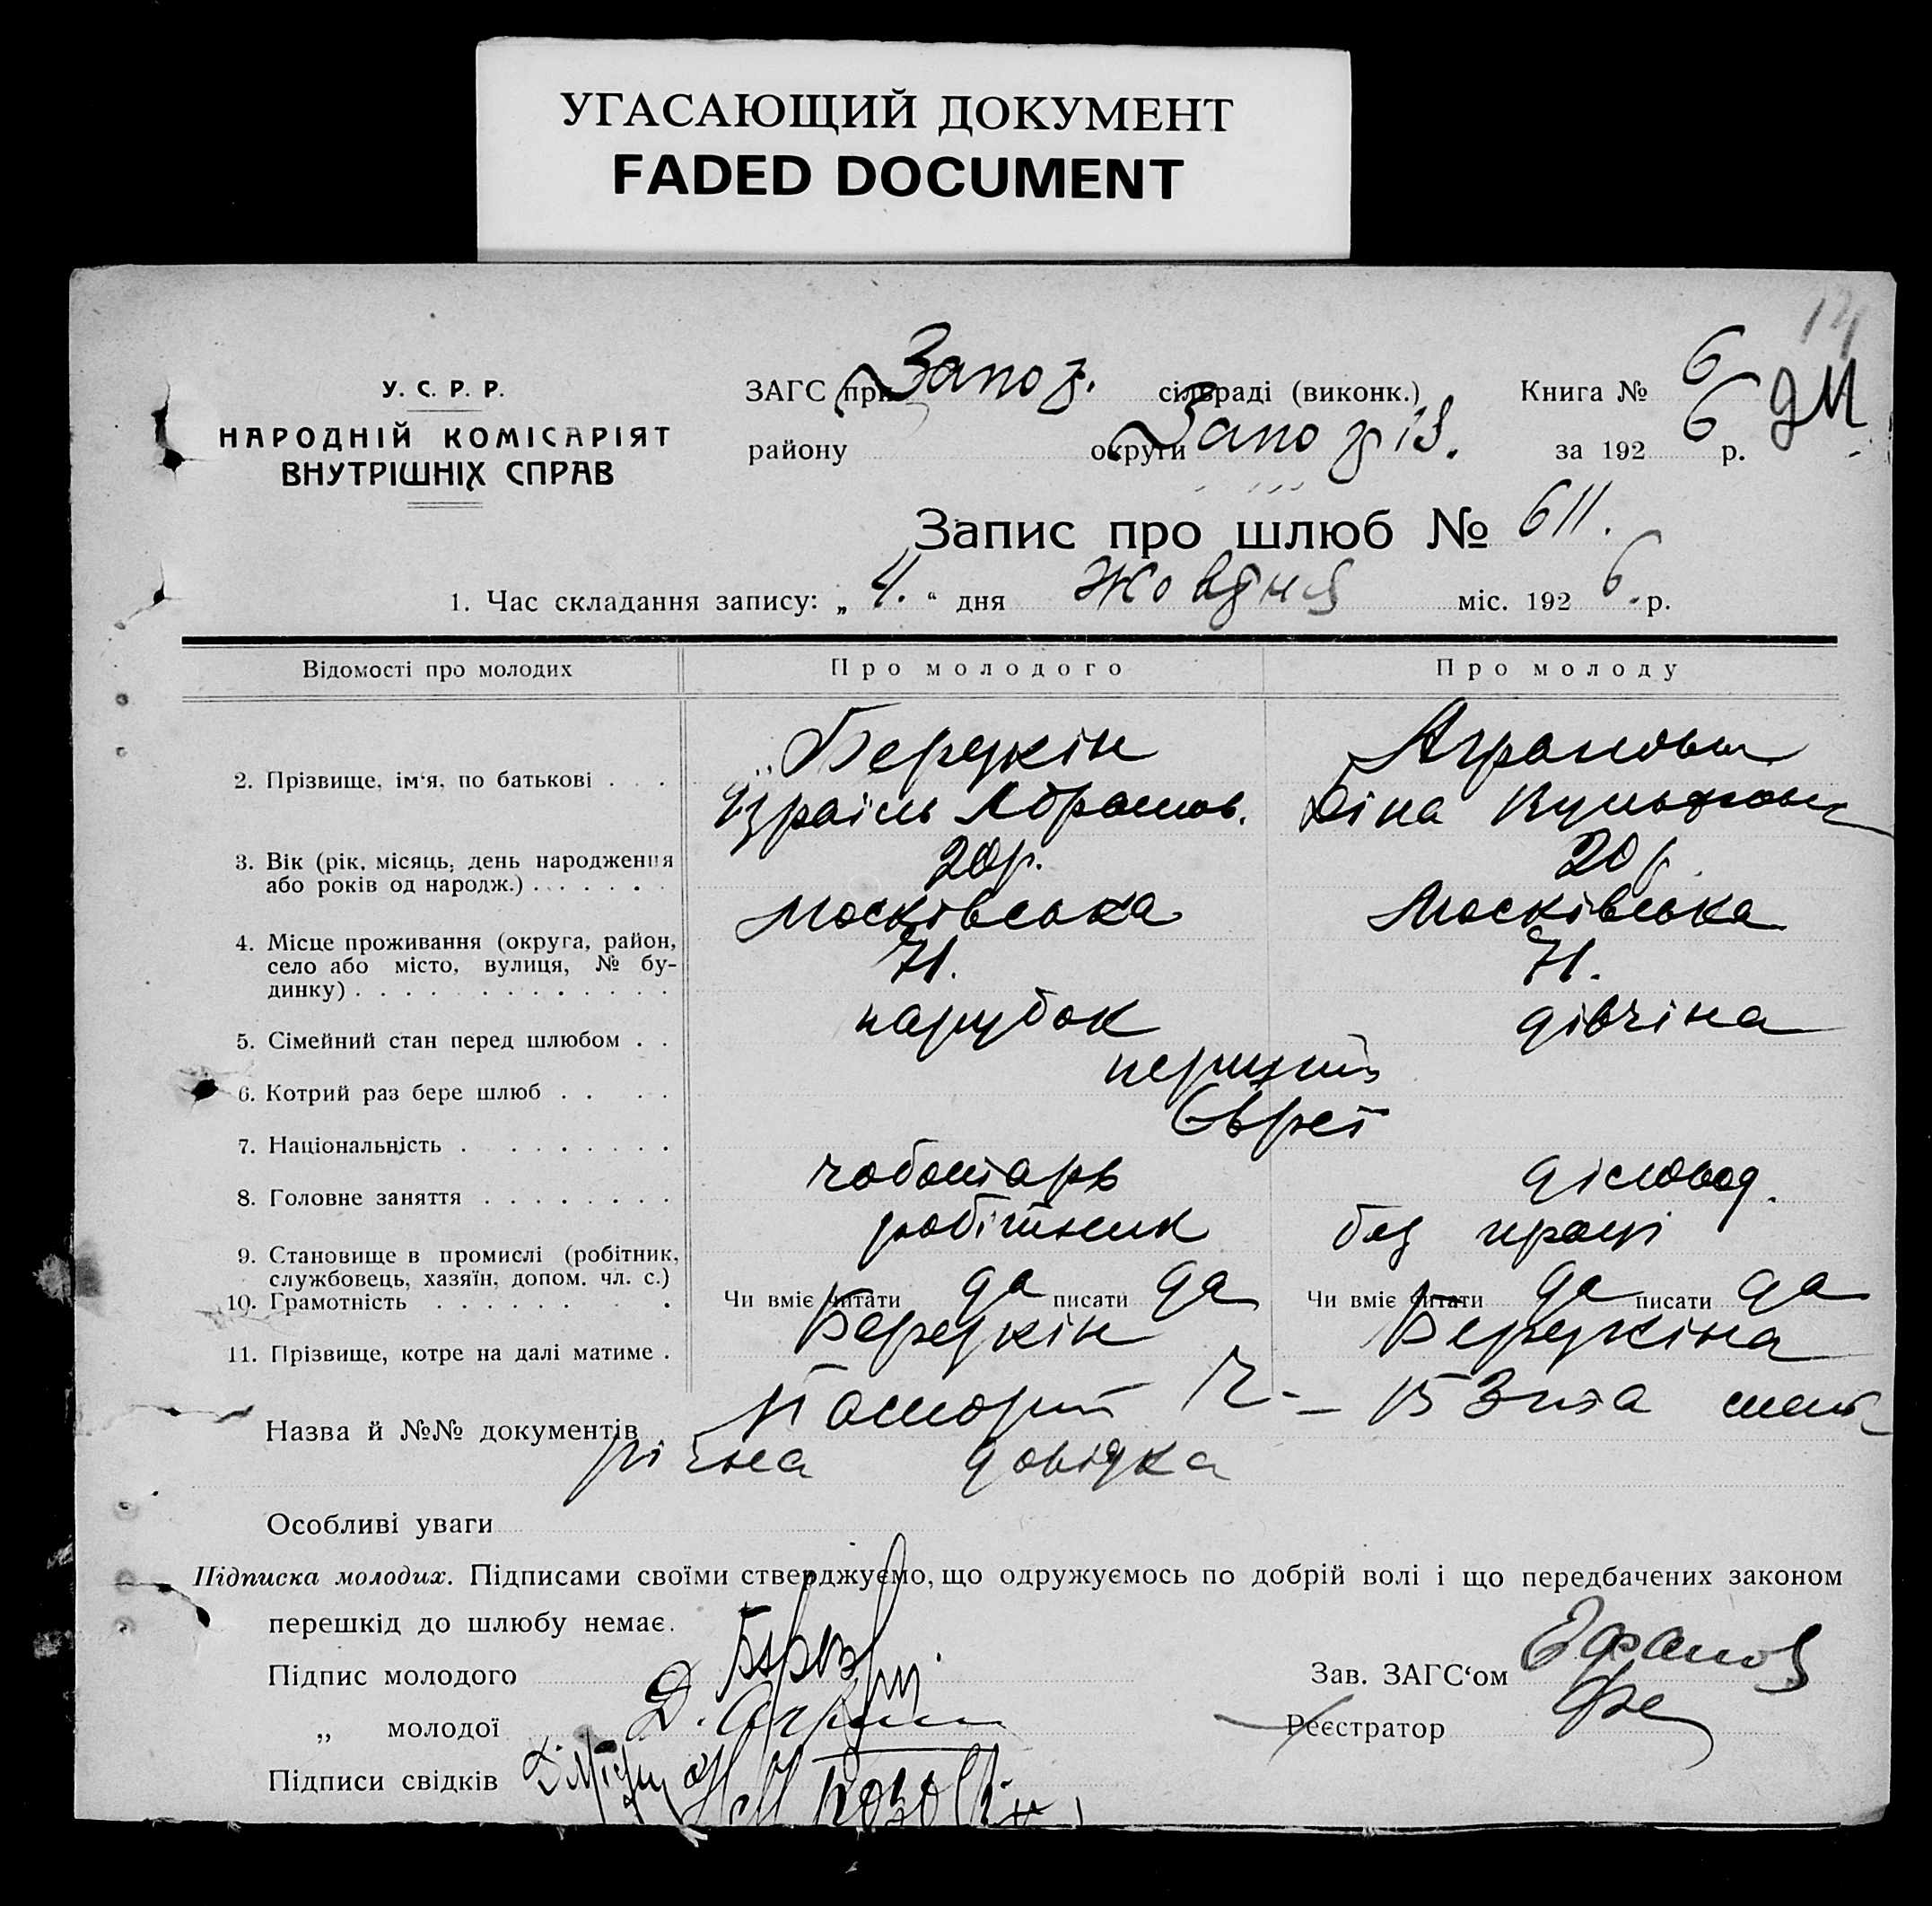 УГАСАЮЩИЙ ДОКУМЕНТ
FADED DOCUMENT
У. С. Р. Р.
НАРОДНІЙ КОМІСАРІЯТ
ВНУТРІШНІХ СПРАВ
ЗАГС при Запоз. сільраді (виконк.) Книга № 6
району округи Запозіз. за 1926 р.
Запис про шлюб № 611.
1. Час складання запису: „ 4. “ дня Жовтня міс. 1926. р.
Відомості про молодих Про молодого Про молоду
2. Прізвище, ім‘я, по батькові . . .
Ізраїль Абрамов. Діна
3. Вік (рік, місяць, день народження
або років од народж.) . . . . . .
20р. 20р.
4. Місце проживання (округа, район,
село або місто, вулиця, № бу-
динку) . . . . . . . . . . . . .
Московська Московська
71. 71.
5. Сімейний стан перед шлюбом . .
парубок дівчіна
6. Котрий раз бере шлюб . . . .
перший
7. Національність . . . . . . . .
Євреї
8. Головне заняття . . . . . . . .
чоботарь діловод.
9. Становище в промислі (робітник,
службовець, хазяїн, допом. чл. с.)
робітник без праці
10. Грамотність . . . . . . . . Чи вміє читати да писати да Чи вміє читати да писати да
11. Прізвище, котре на далі матиме .
Назва й №№ документів Пашорт Ч – 15
довідка
Особливі уваги
Підписка молодих. Підписами своїми стверджуємо, що одружуємось по добрій волі і що передбачених законом
перешкід до шлюбу немає.
Підпис молодого
Зав. ЗАГС‘ом
„ молодої Д.
Реєстратор
Підписи свідків